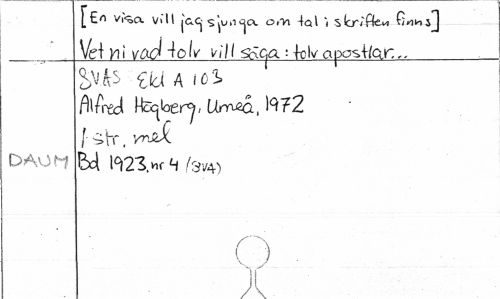 [En visa vill jag sjunga om tal i skriften finns]
Vet ni vad tolv vill säga: tolv apostlar...
SVAS Ekl A 103
Alfred Högberg, Umeå, 1972
1 str, mel
DAUM Bd 1923, nr 4 (SVA)